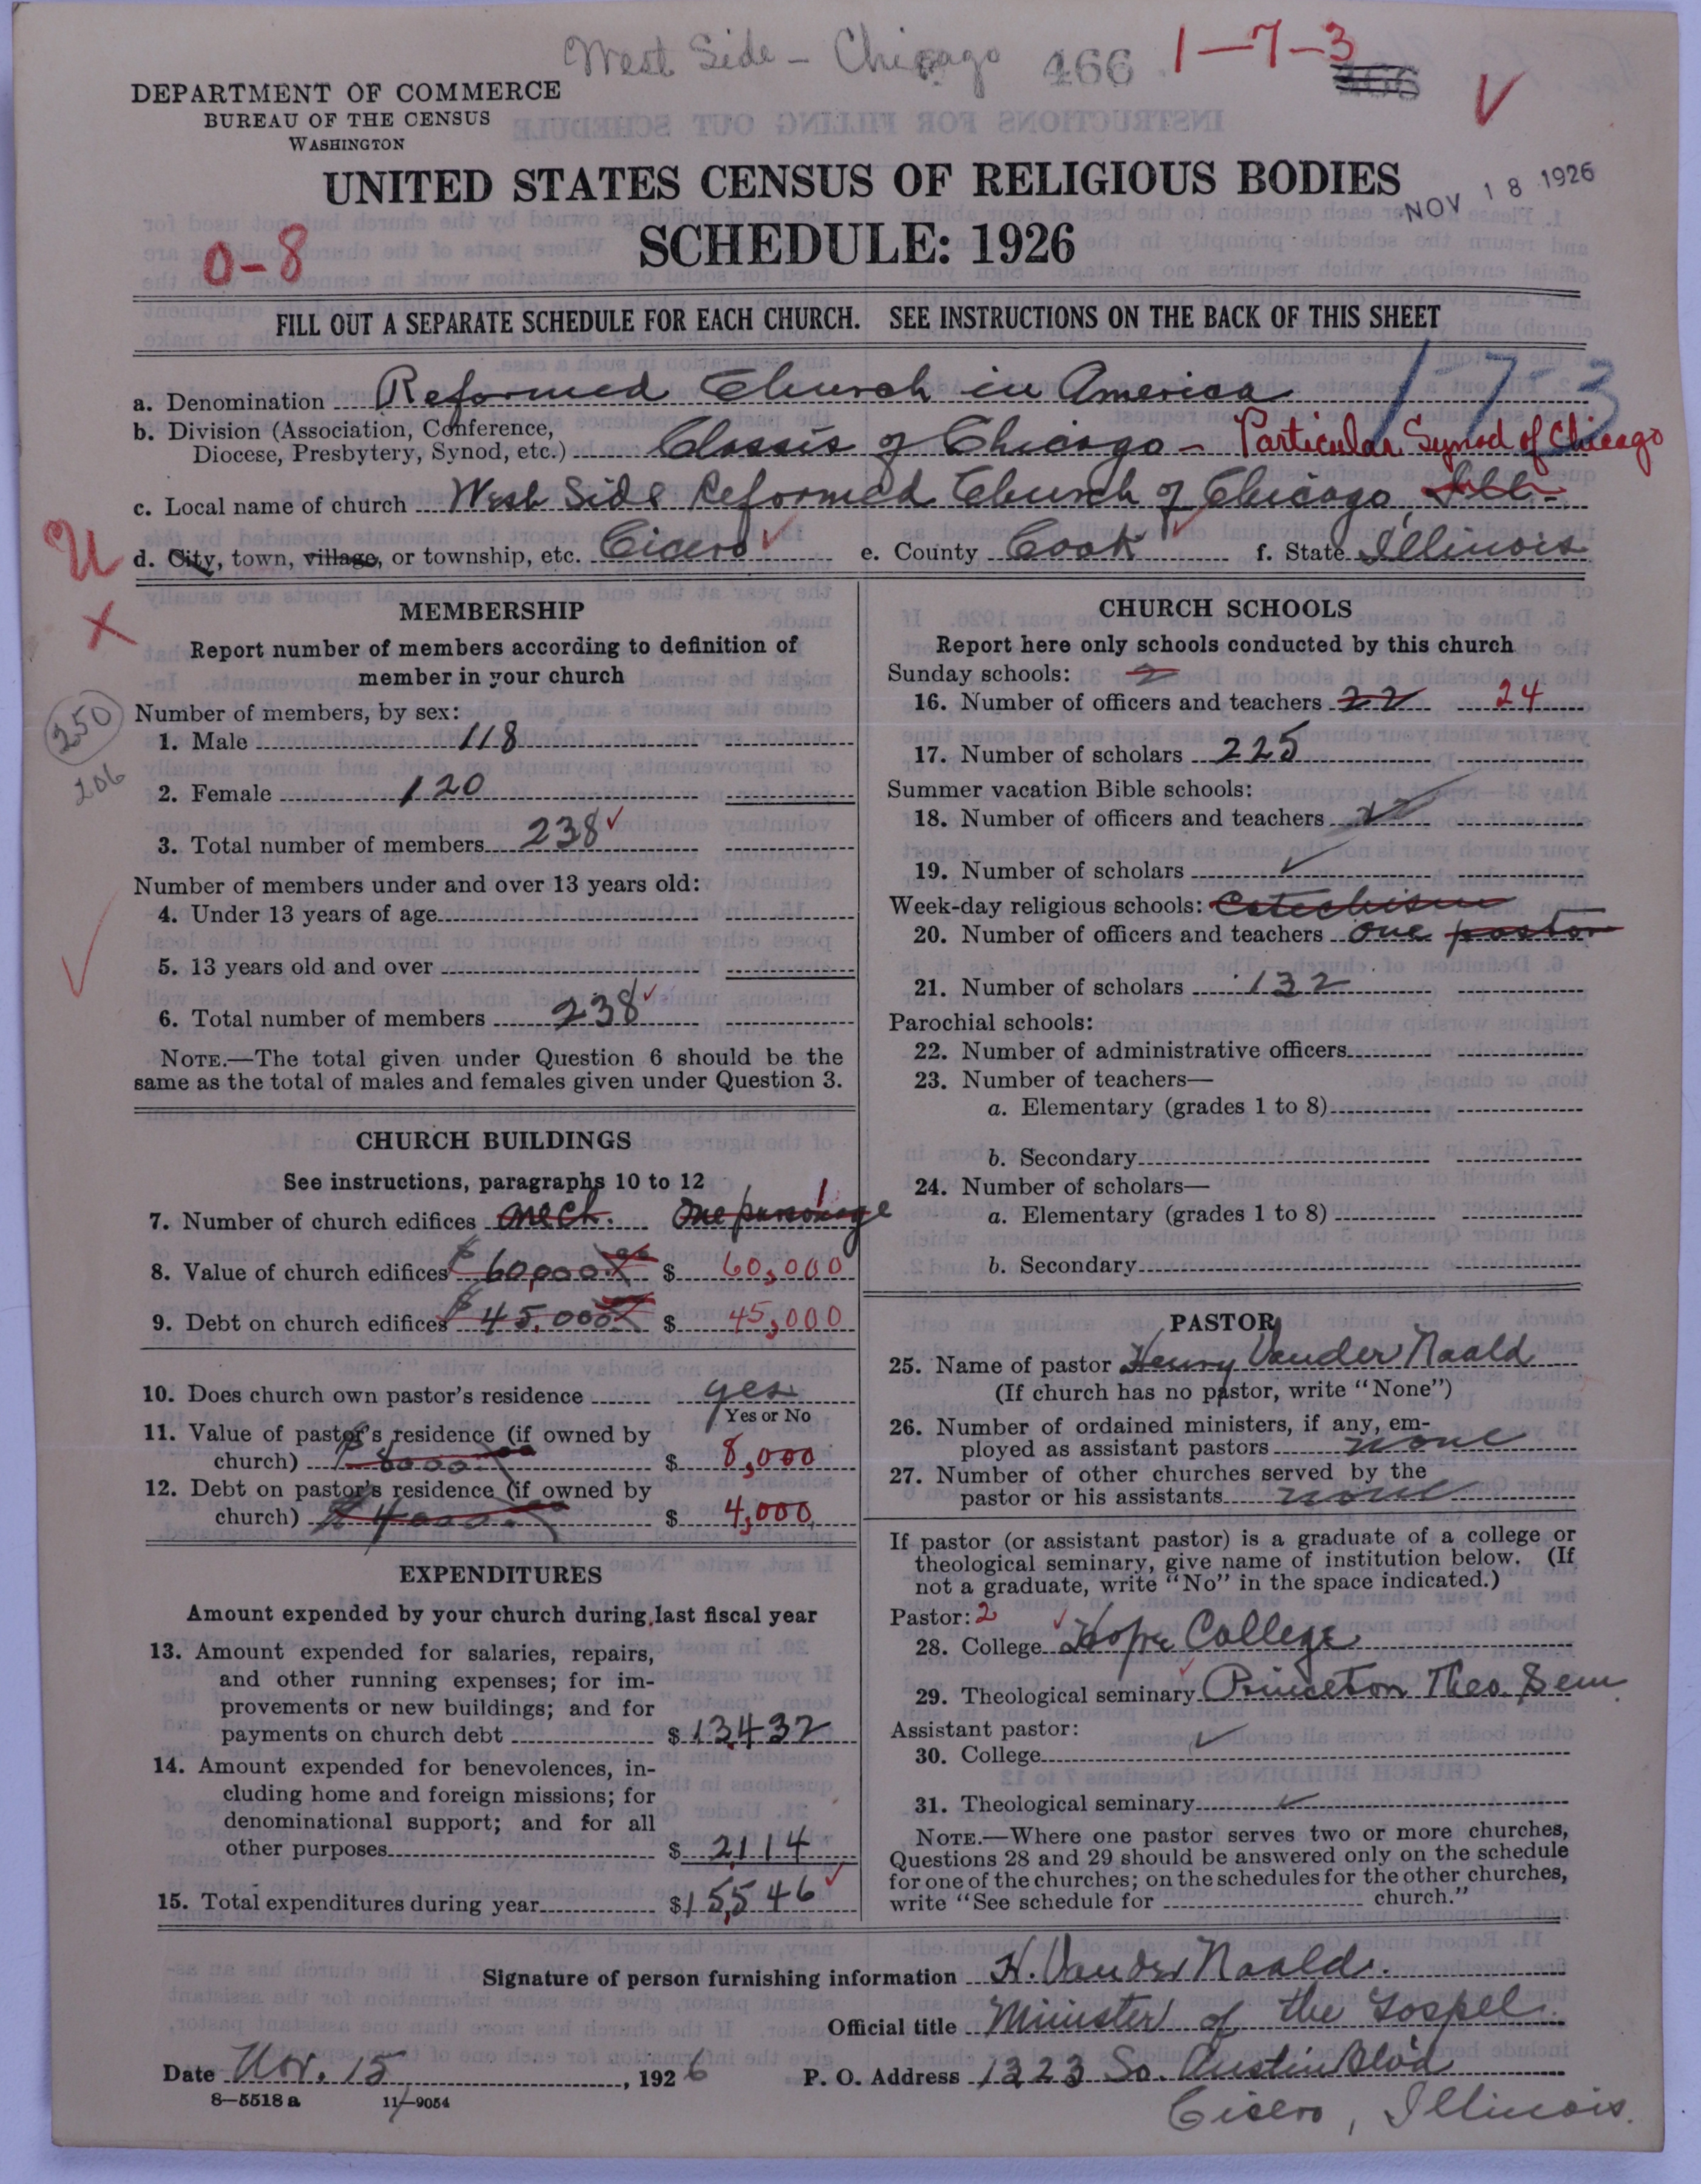 West Side - Chicago 466 1-7-3
DEPARTMENT OF COMMERCE
BUREAU OF THE CENSUS
WASHINGTON
UNITED STATES CENSUS OF RELIGIOUS BODIES
NOV 18 1926
SCHEDULE: 1926
0-8
FILL OUT A SEPARATE SCHEDULE FOR EACH CHURCH. SEE INSTRUCTIONS ON THE BACK OF THIS SHEET
1-7-3
a. Denomination Reformed Church in America
b. Division (Association, Conference,
Diocese, Presbytery, Synod, etc.) Classis of Chicago - Particular Synod of Chicago
c. Local name of church West Side Reformed Church of Chicago, Ill-
d. City, town, village, or township, etc. Cicero e. County Cook f. State Illinois
U
X
MEMBERSHIP
Report number of members according to definition of
member in your church
250
206
Number of members, by sex:
1. Male 118
2. Female 120
3. Total number of members 238
Number of members under and over 13 years old:
4. Under 13 years of age
5. 13 years old and over
6. Total number of members 238
NOTE.—The total given under Question 6 should be the
same as the total of males and females given under Question 3.
CHURCH BUILDINGS
See instructions, paragraphs 10 to 12
7. Number of church edifices one ch. One parsonage 1
8. Value of church edifices $60,000 $ 60,000
9. Debt on church edifices $45,000 $ 45,000
10. Does church own pastor's residence yes
Yes or No
11. Value of pastor's residence (if owned by
church) $8000 $ 8,000
12. Debt on pastor's residence (if owned by
church) $4000 $ 4,000
EXPENDITURES
Amount expended by your church during last fiscal year
13. Amount expended for salaries, repairs,
and other running expenses; for im-
provements or new buildings; and for
payments on church debt $ 13,432
14. Amount expended for benevolences, in-
cluding home and foreign missions; for
denominational support; and for all
other purposes $ 2,114
15. Total expenditures during year $ 15,546
CHURCH SCHOOLS
Report here only schools conducted by this church
Sunday schools: 2
16. Number of officers and teachers 22 24
17. Number of scholars 225
Summer vacation Bible schools:
18. Number of officers and teachers
19. Number of scholars
Week-day religious schools: Catechism
20. Number of officers and teachers one pastor
21. Number of scholars 132
Parochial schools:
22. Number of administrative officers
23. Number of teachers—
a. Elementary (grades 1 to 8)
b. Secondary
24. Number of scholars—
a. Elementary (grades 1 to 8)
b. Secondary
PASTOR
25. Name of pastor Henry Vander Naald
(If church has no pastor, write "None")
26. Number of ordained ministers, if any, em-
ployed as assistant pastors none
27. Number of other churches served by the
pastor or his assistants none
If pastor (or assistant pastor) is a graduate of a college or
theological seminary, give name of institution below. (If
not a graduate, write "No" in the space indicated.)
Pastor: 2
28. College Hope College
29. Theological seminary Princeton Theo. Sem
Assistant pastor:
30. College
31. Theological seminary
NOTE.—Where one pastor serves two or more churches,
Questions 28 and 29 should be answered only on the schedule
for one of the churches; on the schedules for the other churches,
write "See schedule for church."
Signature of person furnishing information H. Vander Naald.
Official title Minister of the Gospel.
Date Nov. 15, 1926 P. O. Address 1323 So. Austin Blvd
Cicero, Illinois.
8—5518 a 11—9054